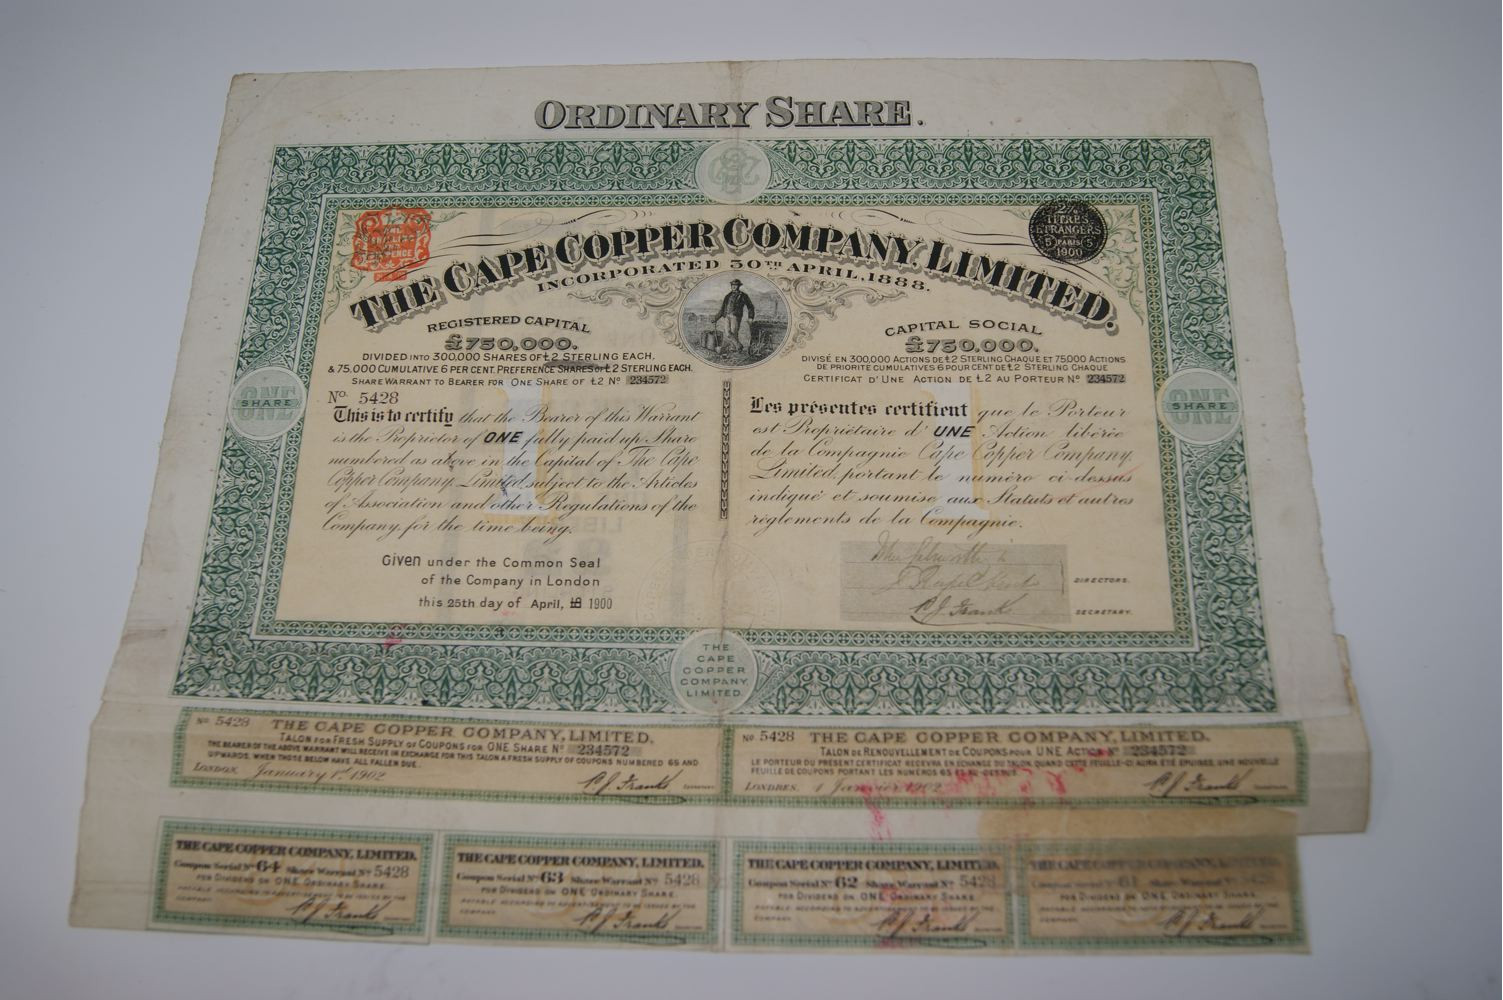 ORDINARY SHARE.
ONE
SHILLING
PENCE
2%
TITRES
ÉTRANGERS
5 PARIS 5
1900
THE CAPE COPPER COMPANY, LIMITED.
INCORPORATED 30TH APRIL, 1888.
REGISTERED CAPITAL
£750,000.
DIVIDED INTO 300,000 SHARES OF £2 STERLING EACH,
& 75,000 CUMULATIVE 6 PER CENT. PREFERENCE SHARES OF £2 STERLING EACH.
SHARE WARRANT TO BEARER FOR ONE SHARE OF £2 No 234572
No. 5428
This is to certify that the Bearer of this Warrant
is the Proprietor of ONE fully paid up Share
numbered as above in the Capital of The Cape
Copper Company, Limited, subject to the Articles
of Association and other Regulations of the
Company, for the time being.
Given under the Common Seal
of the Company in London
this 25th day of April, 18 1900
CAPITAL SOCIAL
£750,000.
DIVISÉ EN 300,000 ACTIONS DE £2 STERLING CHAQUE ET 75000 ACTIONS
DE PRIORITE CUMULATIVES 6 POUR CENT DE £2 STERLING CHAQUE
CERTIFICAT D'UNE ACTION DE £2 AU PORTEUR No 234572
Les présentes certifient que le Porteur
est Propriétaire d'UNE Action libérée
de la Compagnie Cape Copper Company,
Limited, portant le numéro ci-dessus
indiqué et soumise aux Statuts et autres
règlements de la Compagnie.
DIRECTORS.
C J Franks
SECRETARY.
ONE
SHARE
ONE
SHARE
THE
CAPE
COPPER
COMPANY,
LIMITED.
No 5428 THE CAPE COPPER COMPANY, LIMITED.
TALON FOR FRESH SUPPLY OF COUPONS FOR ONE SHARE No 234572
THE BEARER OF THE ABOVE WARRANT WILL RECEIVE IN EXCHANGE FOR THIS TALON A FRESH SUPPLY OF COUPONS NUMBERED 65 AND
UPWARDS, WHEN THOSE BELOW HAVE ALL FALLEN DUE.
LONDON, January 1st 1902
C J Franks SECRETARY.
No. 5428 THE CAPE COPPER COMPANY, LIMITED.
TALON DE RENOUVELLEMENT DE COUPONS POUR UNE ACTION No 234572
LE PORTEUR DU PRÉSENT CERTIFICAT RECEVRA EN ÉCHANGE DU TALON, QUAND CETTE FEUILLE-CI AURA ÉTÉ ÉPUISÉE, UNE NOUVELLE
FEUILLE DE COUPONS PORTANT LES NUMÉROS 65 ET AU-DESSUS.
LONDRES, 1 Janvier 1902
C J Franks SECRETARY.
THE CAPE COPPER COMPANY, LIMITED.
Coupon Serial No 64 Share Warrant No 5428
FOR DIVIDEND ON ONE ORDINARY SHARE.
PAYABLE ACCORDING TO ADVERTISEMENT TO BE ISSUED BY THE
COMPANY.
C J Franks
THE CAPE COPPER COMPANY, LIMITED.
Coupon Serial No 63 Share Warrant No 5428
FOR DIVIDEND ON ONE ORDINARY SHARE.
PAYABLE ACCORDING TO ADVERTISEMENT TO BE ISSUED BY THE
COMPANY.
C J Franks
THE CAPE COPPER COMPANY, LIMITED.
Coupon Serial No 62 Share Warrant No 5428
FOR DIVIDEND ON ONE ORDINARY SHARE.
PAYABLE ACCORDING TO ADVERTISEMENT TO BE ISSUED BY THE
COMPANY.
C J Franks
THE CAPE COPPER COMPANY, LIMITED.
Coupon Serial No 61 Share Warrant No 5428
FOR DIVIDEND ON ONE ORDINARY SHARE.
PAYABLE ACCORDING TO ADVERTISEMENT TO BE ISSUED BY THE
COMPANY.
C J Franks